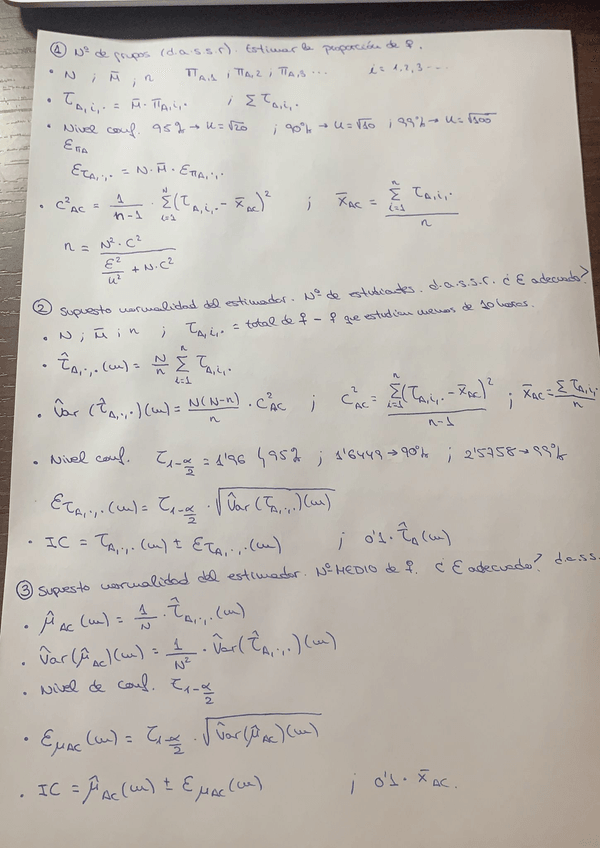 ① Nº de grupos (d.a.s.s.r). Estimar la proporción de ♀.
• N ; M̄ ; n   Π_A,1 ; Π_A,2 ; Π_A,3 ...   i = 1,2,3 ...
• τ_A,i,· = M̄ · Π_A,i,·   ; Σ τ_A,i,·
• Nivel conf. 95% → u = √20   ; 90% → u = √10 ; 99% → u = √100
ε_ΠA
ε_τA,·,· = N · M̄ · ε_ΠA,·,·
• C²_AC = 1/(n-1) · Σ_{i=1}^{N} (τ_A,i,· - x̄_AC)²   ;   x̄_AC = (Σ_{i=1}^{n} τ_A,i,·)/n
n = (N² · C²)/(ε²/u² + N·C²)
② Supuesto normalidad del estimador. Nº de estudiantes. d.a.s.s.r. ¿ε adecuado?
• N ; M̄ ; n   ; τ_A,i,· = total de ♀ - ♀ que estudian menos de 10 horas.
• τ̂_A,·,· (m) = N/n Σ_{i=1}^{n} τ_A,i,·
• V̂ar (τ̂_A,·,·)(m) = N(N-n)/n · C²_AC   ;   C²_AC = Σ(τ_A,i,· - x̄_AC)²/(n-1)   ; x̄_AC = Σ τ_A,i,·/n
• Nivel conf.   τ_{1-α/2} = 1'96 ↳ 95%   ; 1'6449 → 90%   ; 2'5758 → 99%
ε_τA,·,· (m) = τ_{1-α/2} · √V̂ar(τ_A,·,·)(m)
• IC = τ_A,·,· (m) ± ε_τA,·,· (m)   ;   0'1 · τ̂_A (m)
③ Supuesto normalidad del estimador. Nº MEDIO de ♀. ¿ε adecuado? d.a.s.s.
• μ̂_AC (m) = 1/N · τ̂_A,·,· (m)
• V̂ar(μ̂_AC)(m) = 1/N² · V̂ar(τ̂_A,·,·)(m)
• Nivel de conf.   τ_{1-α/2}
• ε_μAC (m) = τ_{1-α/2} · √V̂ar(μ̂_AC)(m)
• IC = μ̂_AC (m) ± ε_μAC (m)   ;   0'1 · x̄_AC.